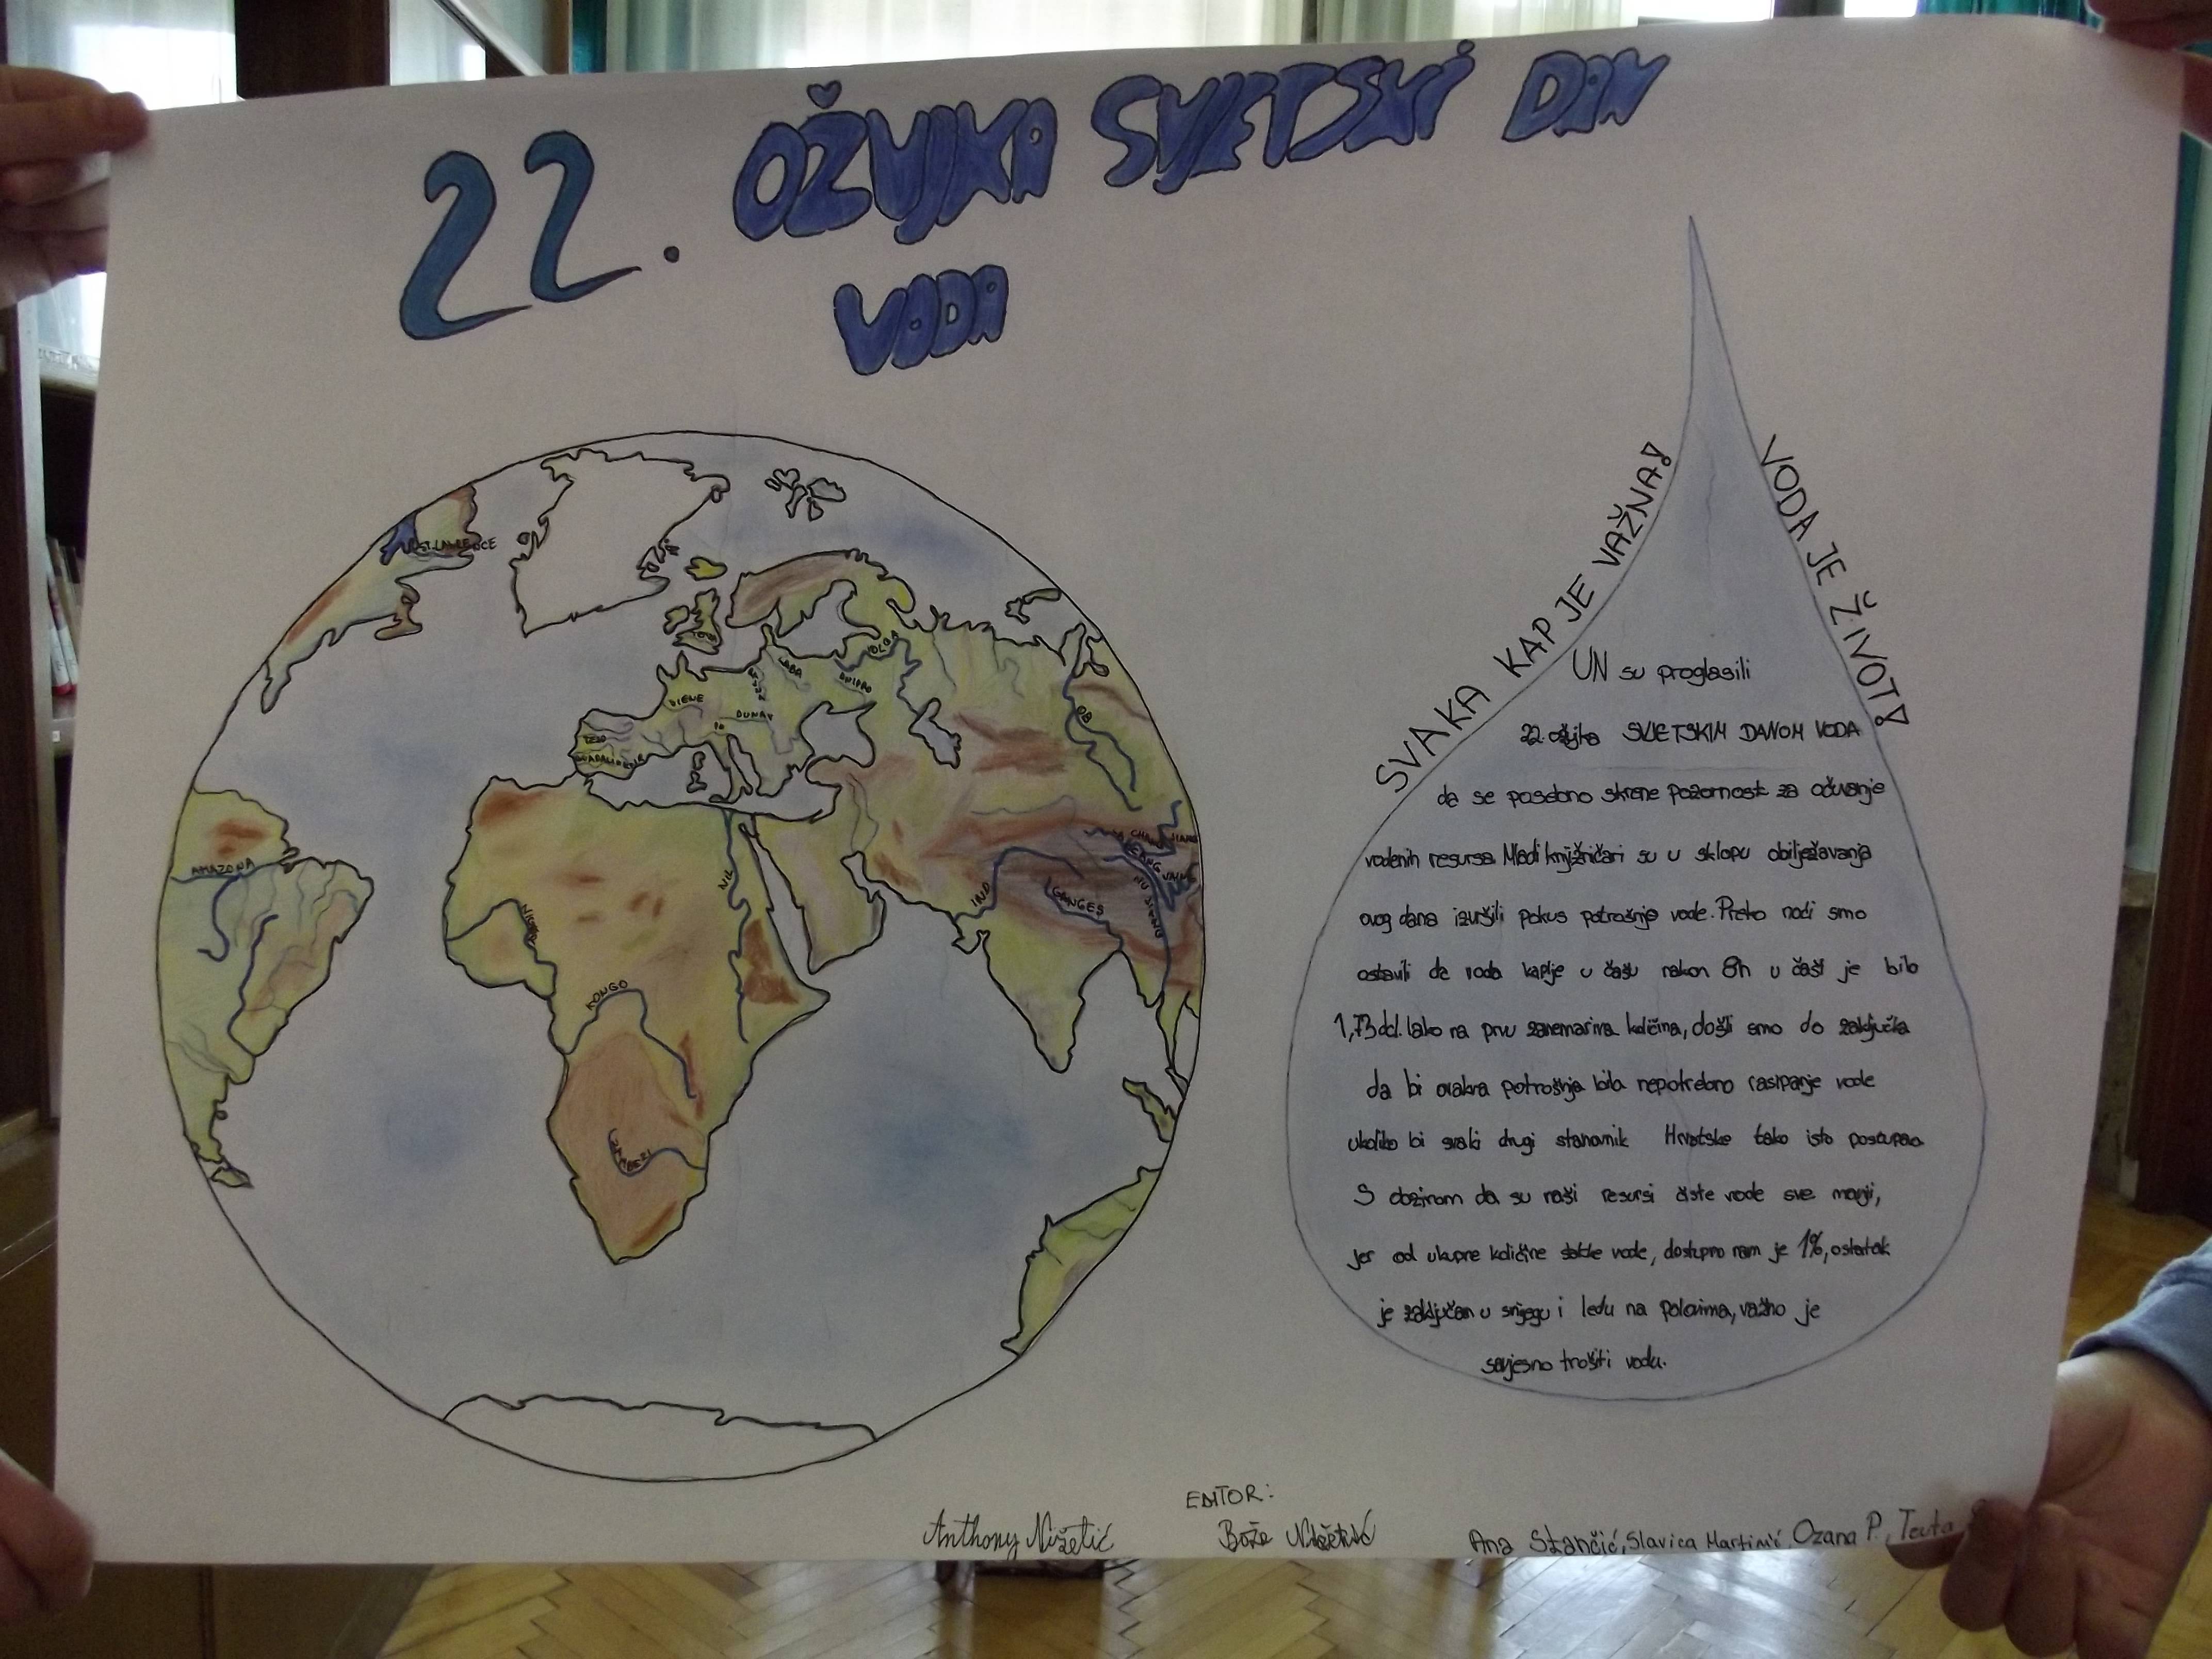 22. OŽUJKA SVJETSKI DAN
VODA
SVAKA KAP JE VAŽNA!
VODA JE ŽIVOT!
UN su proglasili
22. ožujka SVJETSKIM DANOM VODA
da se posebno skrene pozornost za očuvanje
vodenih resursa. Mladi knjižničari su u sklopu obilježavanja
ovog dana izvršili pokus potrošnje vode. Preko noći smo
ostavili da voda kaplje u čašu nakon 8h u čaši je bilo
1,73 dcl. Iako na prvu zanemariva količina, došli smo do zaključka
da bi ovakva potrošnja bila nepotrebno rasipanje vode
ukoliko bi svaki drugi stanovnik Hrvatske tako isto postupao
S obzirom da su naši resursi čiste vode sve manji,
jer od ukupne količine slatke vode, dostupno nam je 1%, ostatak
je zaključan u snijegu i ledu na polovima, važno je
savjesno trošiti vodu.
ST. LAWRENCE
AMAZONA
NIGER
KONGO
ZAMBEZI
NIL
IND
GANGES
NU JIANG
OB
VOLGA
DNIPRO
LABA
RAJNA
DUNAV
PO
TEJO
GUADALQUIVIR
EDITOR:
Anthony Nižetić
Bože Nižetić
Ana Stančić, Slavica Martinić, Ozana P., Teuta